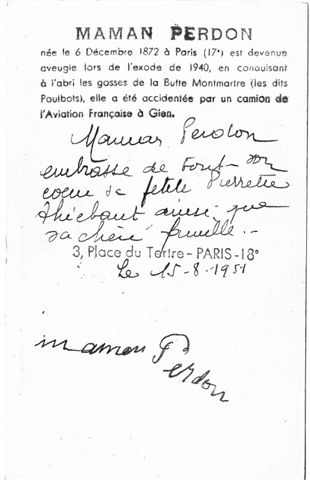 MAMAN PERDON
née le 6 Décembre 1872 à Paris (17e) est devenue
aveugle lors de l'exode de 1940, en conduisant
à l'abri les gosses de la Butte Montmartre (les dits
Poulbots), elle a été accidentée par un camion de
l'Aviation Française à Gien.
Maman Perdon
embrasse de tout son
cœur sa petite Pierrette
Thiébaut ainsi que
sa chère famille..
3, Place du Tertre - PARIS-18e
Le 15-8-1951
maman P
erdon